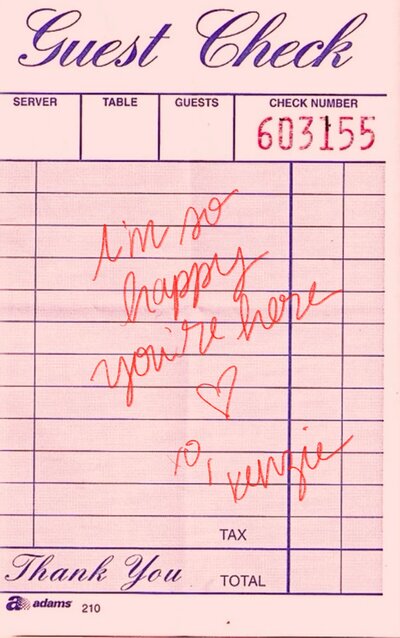 Guest Check
SERVER TABLE GUESTS CHECK NUMBER
603155
i'm so
happy
you're here
♡
xo, kenzie
TAX
Thank You TOTAL
adams 210